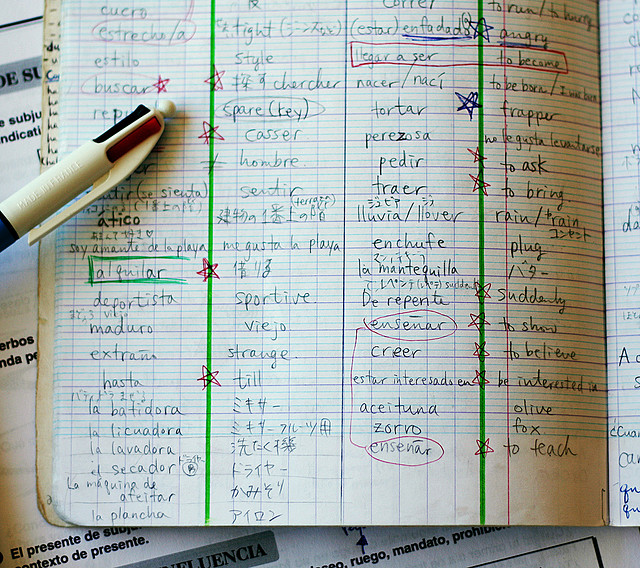 cuero
correr to run / to hurry
estrecho/a tight (estar) enfadado angry
estilo style llegar a ser to become
buscar 探す chercher nacer / nací to be born /
spare (key) tortar frapper
casser perezosa no le gusta levantarse
hombre pedir to ask
(se sienta) sentir traer to bring
ático 建物の1番上の階 (terraza) lluvia / llover rain / to rain
soy amante de la playa me gusta la playa enchufe plug コンセント
alquilar 借りる la mantequilla バター
deportista sportive De repente suddenly
maduro viejo enseñar to show
extraña strange creer to believe
hasta till estar interesado en be interested in
la batidora ミキサー aceituna olive
la licuadora ミキサー フルーツ用 zorro fox
la lavadora 洗たく機 enseñar to teach
el secador ドライヤー
La máquina de afeitar かみそり
la plancha アイロン
DE SU
e subju
ndicati
erbos
nda pe
El presente de subj
ontexto de presente.
FLUENCIA
seo, ruego, mandato, prohibi